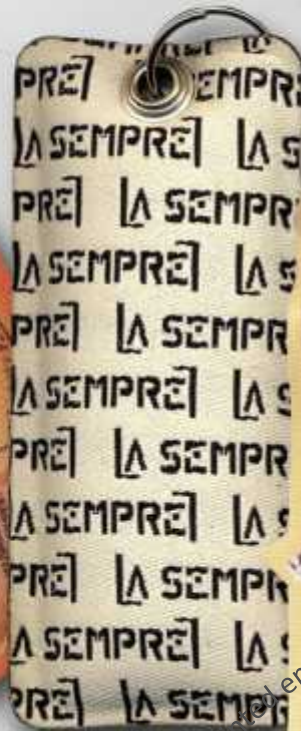 PRE SEMPR
LA SEMPRE LA S
PRE LA SEMPR
LA SEMPRE LA S
PRE LA SEMPR
LA SEMPRE LA S
PRE LA SEMPR
LA SEMPRE LA S
PRE LA SEMPR
LA SEMPRE LA S
PRE LA SEMPR